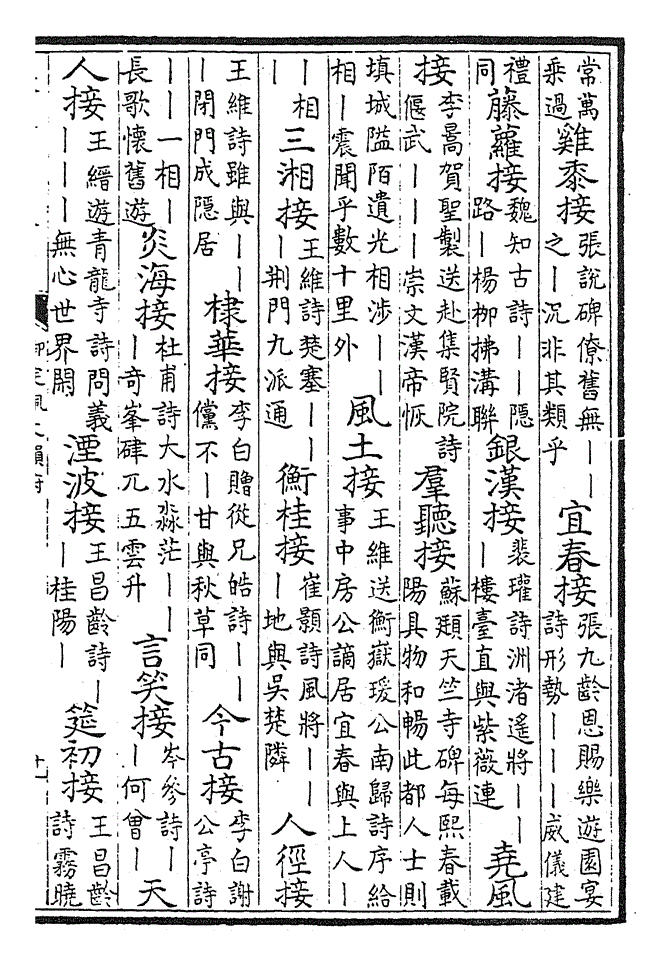 常萬乗過雞黍接張說碑僚舊無丨丨之丨沉非其類乎宜春接張九齡恩賜樂遊園宴詩形勢丨丨丨威儀建
禮同藤蘿接魏知古詩丨丨隠路丨楊栁拂溝聯銀漢接裴瓘詩洲渚遙將丨丨丨樓臺直與紫薇連堯風
接李暠賀聖製送赴集賢院詩偃武丨丨丨崇文漢帝恢羣聽接蘇頲天竺寺碑每熙春載陽具物和暢此都人士則
填城隘陌遺光相渉丨丨相丨震聞乎數十里外風土接王維送衡嶽瑗公南歸詩序給事中房公謫居宜春與上人丨
丨相三湘接王維詩楚塞丨丨丨荆門九派通衡桂接崔顥詩風將丨丨丨地與吳楚隣人徑接
王維詩雖與丨丨丨閉門成隠居棣華接李白贈從兄皓詩丨丨儻不丨甘與秋草同今古接李白謝公亭詩
丨丨一相丨長歌懷舊遊炎海接杜甫詩大水淼茫丨丨丨奇峯硉兀五雲升言笑接岑參詩丨丨何曾丨天
人接王縉遊青龍寺詩問義丨丨丨無心世界閒湮波接王昌齡詩丨丨桂陽丨筵初接王昌齡詩霧曉